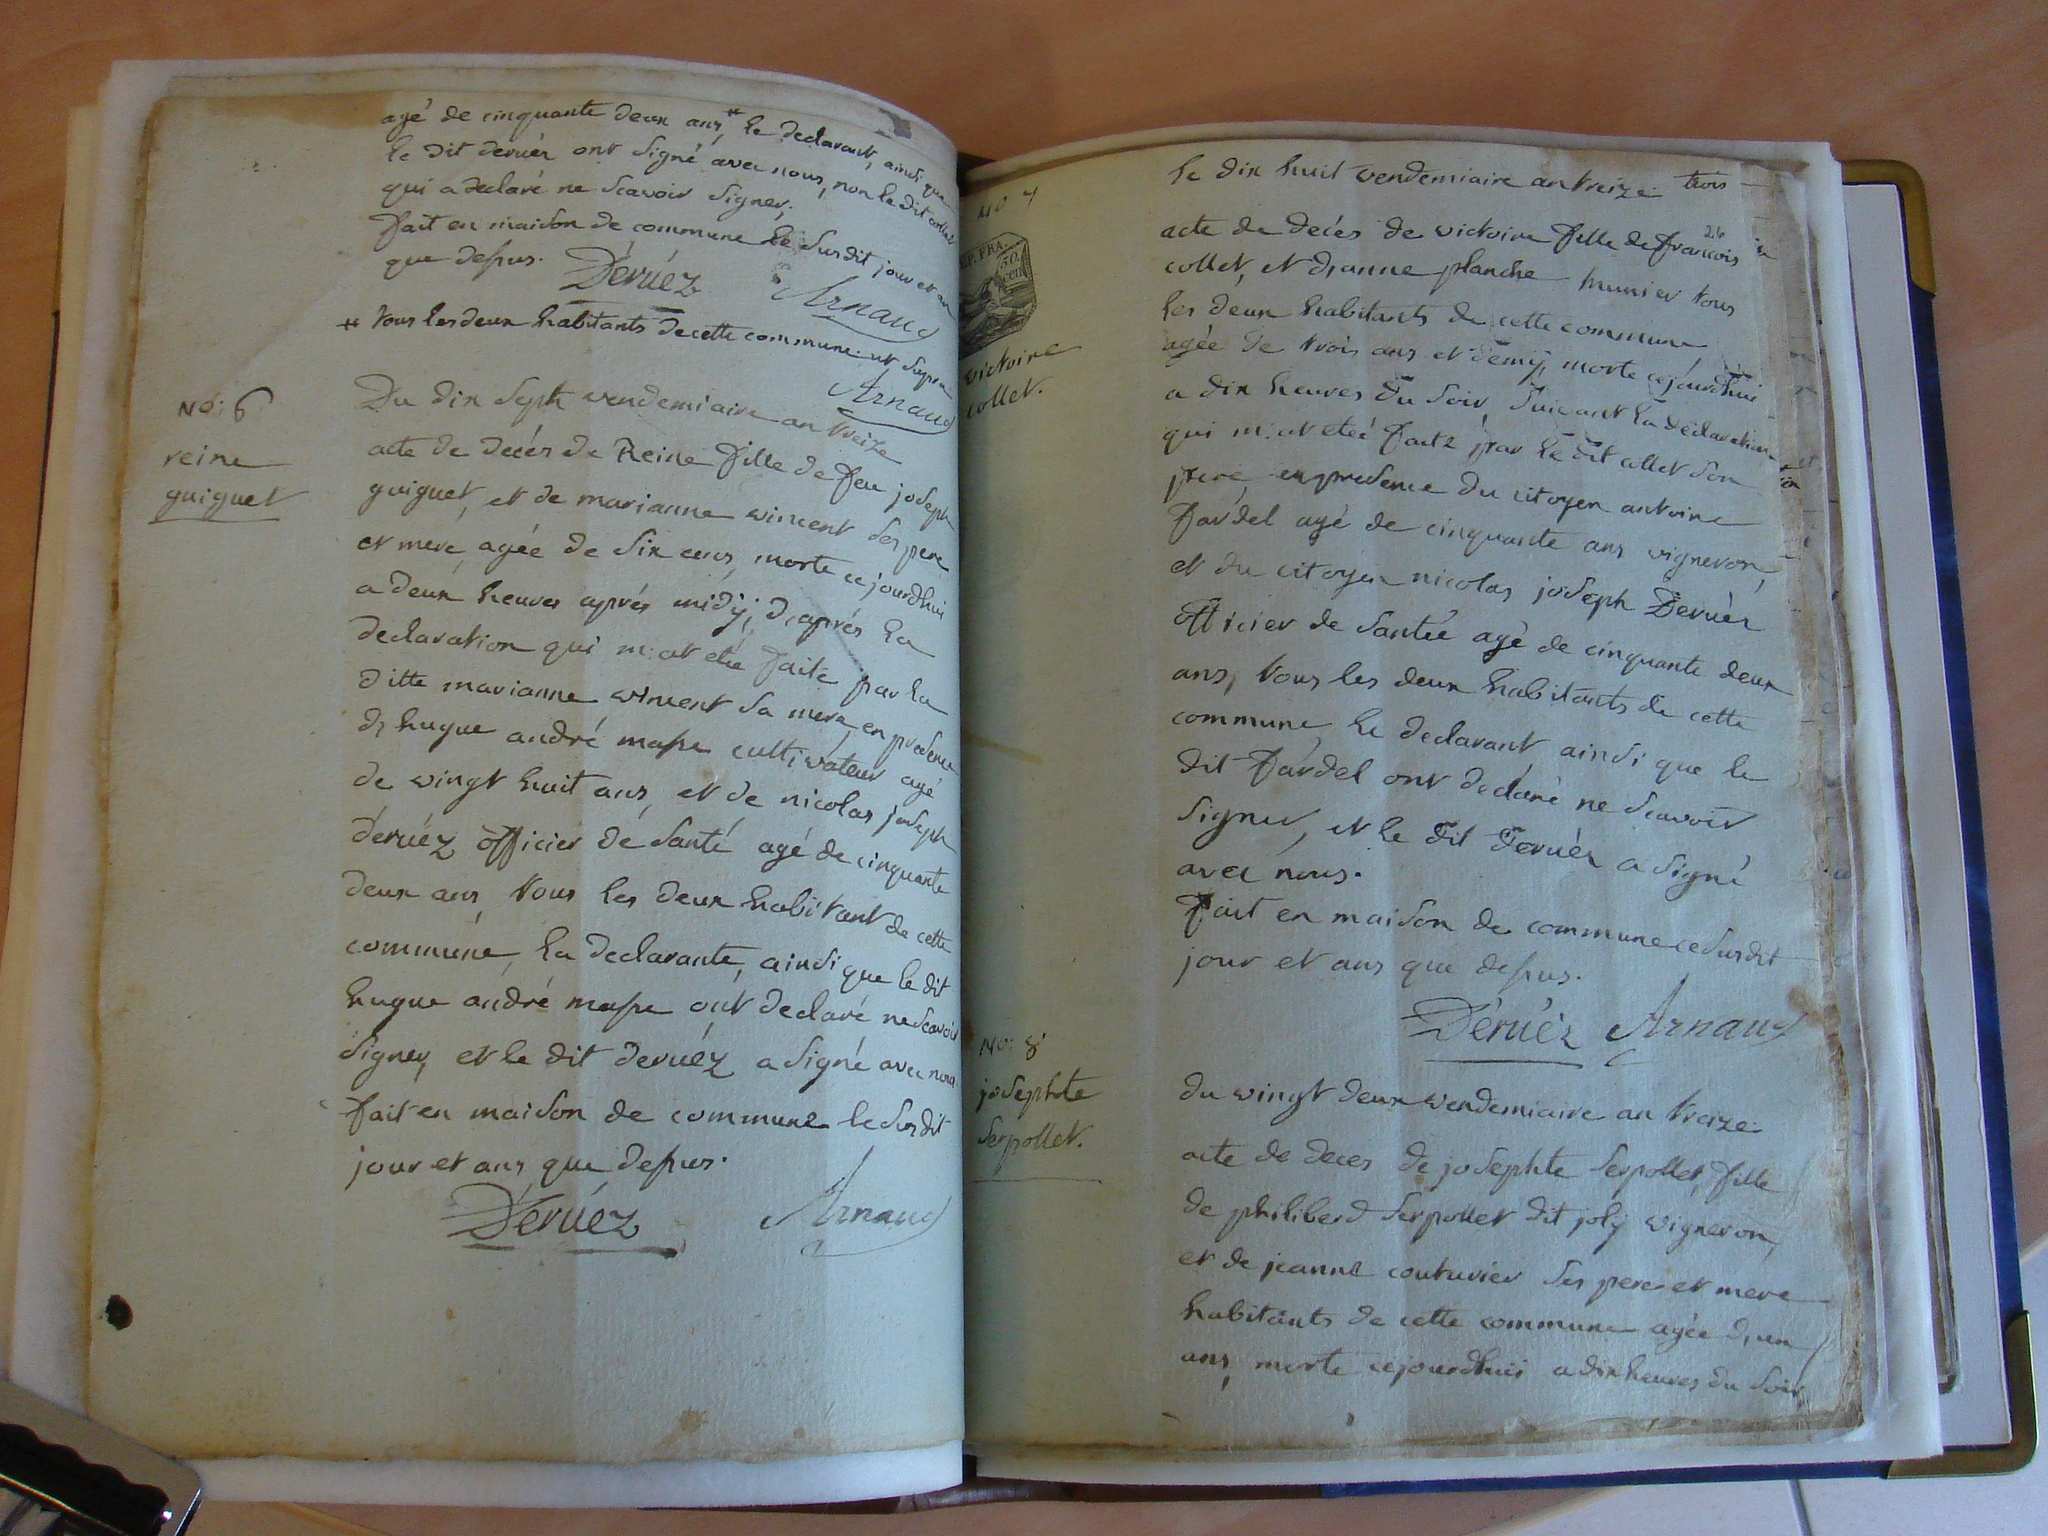 agé de cinquante deux ans # le declarant, ainsi que
le dit deruéz ont signé avec nous, non le dit collet
qui a declaré ne scavoir signer.
fait en maison de commune le susdit jour et an
que desus.
Déruéz Arnaud
# tous les deux habitants de cette commune ut supra
Arnaud
No: 6
reine
guiguet
Du dix sept vendemiaire an treize
acte de decés de Reine fille de feu joseph
guiguet, et de marianne vincent ses pere
et mere, agée de six ans, morte cejourdhui
a deux heures aprés midÿ, d, aprés la
declaration qui m'at eté faite par la
ditte marianne vincent sa mere en presence
d, hugue andré masse cultivateur agé
de vingt huit ans, et de nicolas joseph
déruéz officier de santé agé de cinquante
deux ans tous les deux habitant de cette
commune, la declarante, ainsi que le dit
hugue andré masse ont declaré ne scavoir
signer, et le dit deruéz a signé avec nous
fait en maison de commune le susdit
jour et ans que desus.
Déruéz Arnaud
No 7
REP. FRA.
50
cen
victoire
collet.
le dix huit vendemiaire an treize trois
26
acte de decés de victoire fille de francois
collet, et d, anne planche munier tous
les deux habitants de cette commune,
agée de trois ans et demÿ, morte cejourdhui
a dix heures du soir, suivant la declaration
qui m'at eteé faite par le dit collet son
pere, en presence du citoyen antoine
fardel agé de cinquante ans vigneron,
et du citoyen nicolas joseph Deruéz
officier de santée agé de cinquante deux
ans, tous les deux habitants de cette
commune, le declarant, ainsi que le
dit fardel ont declaré ne scavoir
signer, et le dit Deruéz a signé
avec nous.
fait en maison de commune ce susdit
jour et ans que desus.
Déruéz Arnaud
No: 8
josephte
serpollet.
du vingt deux vendemiaire an treize
acte de deces de josephte serpollet, fille
de philiberd serpollet dit jolÿ vigneron,
et de jeanne couturier ses pere et mere
habitants de cette commune agée d, un
ans, morte cejourdhui a dix heures du soir